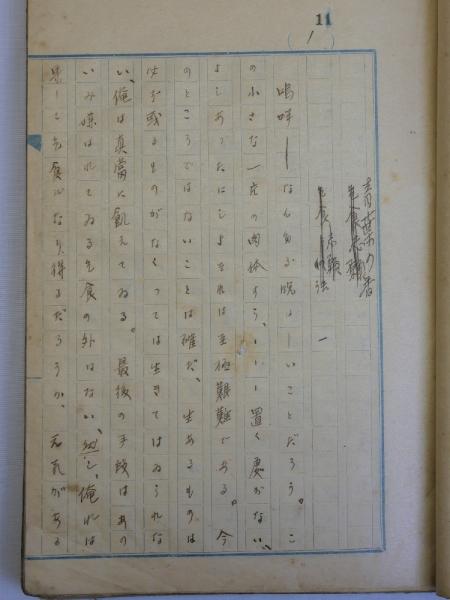 11
(1)
青葉の
乞食志願
乞食志願
一
嗚呼──なんと云ふ呪はしいことだろう。こ
の小さな一疋の肉体すら、、、、置く處がない、
よしあったにしよそれは至極艱難である。今
のところではないことは確だ、生あるものは
必ず或るものがなくっては生きてはゐられな
い、俺は真當に飢えてゐる。最後の手段はあの
いみ嫌はれてゐる乞食の外はない、然し、俺れは
果して乞食になり得るだろうか、元気がある